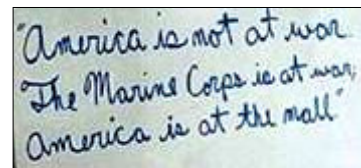 "America is not at war.
The Marine Corps is at war;
America is at the mall"